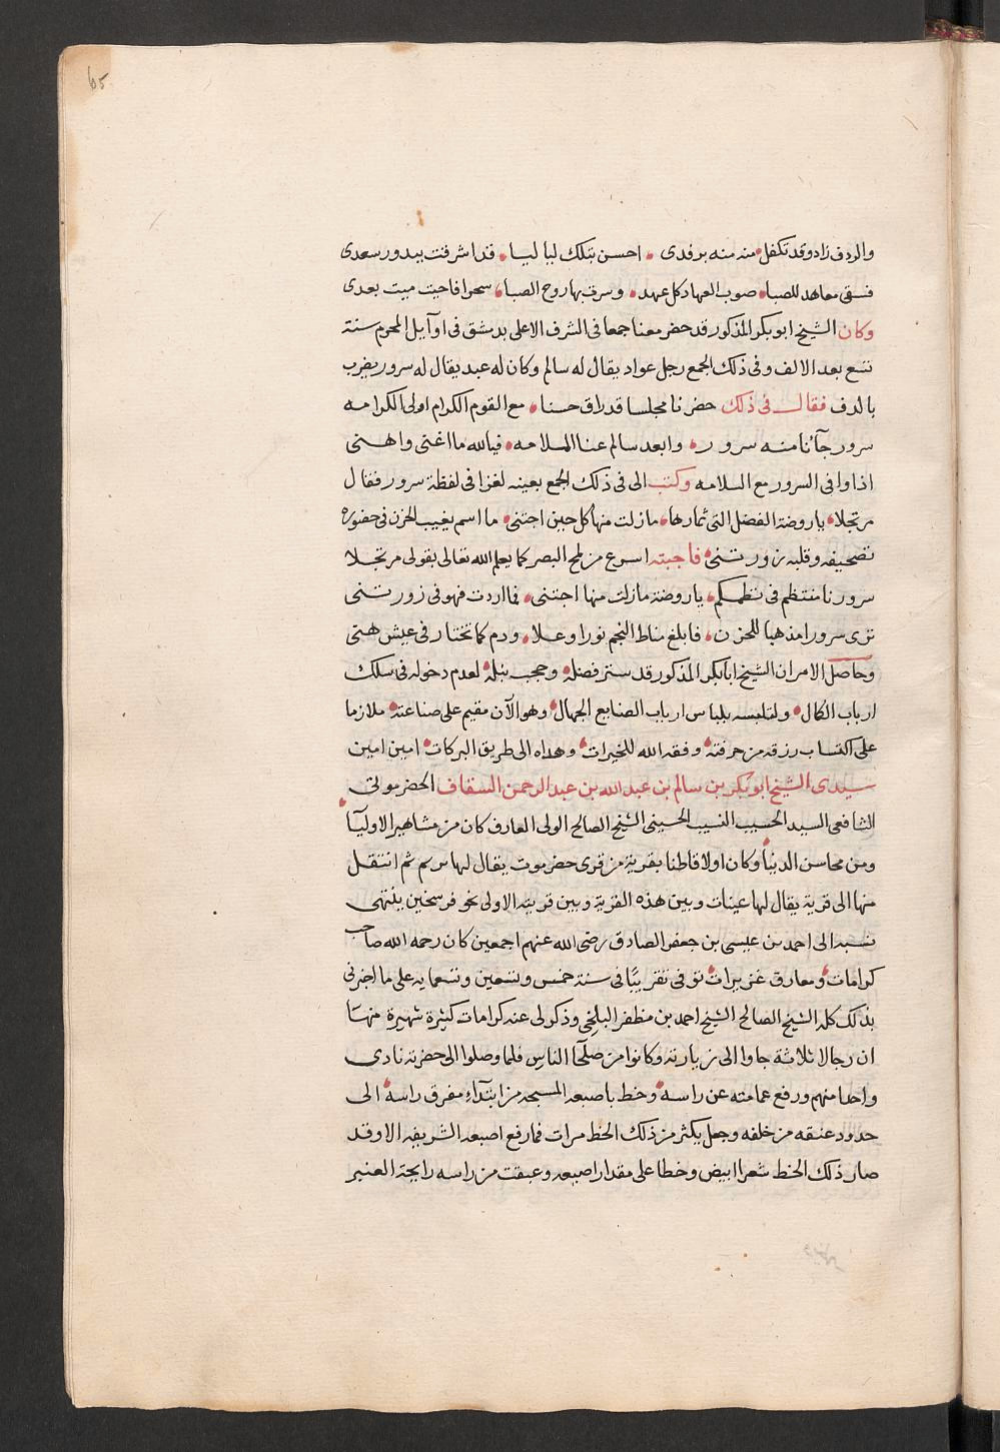 65
والردف زاد وقد تكفل منه منه برفدى احسن بتلك لياليا قد اشرقت ببدور سعدى
فسقى معاهد للصبا صوب العهاد كل عهد وسرت بها روح الصبا سحرا فاحيت ميت بعدى
وكان الشيخ ابو بكر المذكور قد حضر معنا جمعا فى الشرف الاعلى بدمشق فى اوآيل المحرم سنة
تسع بعد الالف وفى ذلك الجمع رجل عواد يقال له سالم وكان له عبد يقال له سرور يضرب
بالدف فقال فى ذلك حضرنا مجلسا قد راق حسنا مع القوم الكرام اولى الكرامه
سرور جآنا منه سرور وابعد سالم عنا الملامه فيالله ما اغنى واهنى
اذا وافى السرور مع السلامه وكتب الى فى ذلك الجمع بعينه لغزا فى لفظة سرور فقال
مرتجلا يا روضة الفضل التى ثمارها ما زلت منها كل حين اجتنى ما اسم يغيب الحزن فى حضوره
تصحيفه وقلبه زورتنى فاجبته اسرع من لمح البصر كما يعلم الله تعالى بقولى مرتجلا
سرورنا منتظم فى نظمكم يا روضة ما زلت منها اجتنى فما اردت فهو فى زورتنى
ترى سرورا مذهبا للحزن فابلغ مناط النجم نورا وعلا ودم كما تختار فى عيش هنى
وحاصل الامر ان الشيخ ابا بكر المذكور قد ستر فضله وحجب نبله لعدم دخوله فى سلك
ارباب الكمال ولتلبسه بلباس ارباب الصنايع الجهال وهو الآن مقيم على صناعته ملازما
على اكتساب رزقه من حرفته وفقه الله للخيرات وهداه الى طريق البركات امين امين
سيدى الشيخ ابو بكر بن سالم بن عبد الله بن عبد الرحمن السقاف الحضرموتى
الشافعى السيد الحسيب النسيب الحسينى الشيخ الصالح الولى العارف كان من مشاهير الاوليآ
ومن محاسن الدنيا وكان اولا قاطنا بقرية من قرى حضرموت يقال لها ترسم ثم انتقل
منها الى قرية يقال لها عينات وبين هذه القرية وبين قريته الاولى نحو فرسخين ينتهى
نسبه الى احمد بن عيسى بن جعفر الصادق رضى الله عنهم اجمعين كان رحمه الله صاحب
كرامات ومعارف غزيرات توفى تقريبًا فى سنة خمس وتسعين وتسعمايه على ما اخبرنى
بذلك كله الشيخ الصالح الشيخ احمد بن مظفر البلخى وذكر لى عنه كرامات كثيرة شهيرة منها
ان رجالا ثلاثة جاوا الى زيارته وكانوا من صلحآ الناس فلما وصلوا الى حضرته نادى
واحدا منهم ورفع عمامته عن راسه وخط باصبعه المسبحه من ابتدآء مفرق راسه الى
حدود عنقه من خلفه وجعل يكثر من ذلك الخط مرات فما رفع اصبعه الشريفه الا وقد
صار ذلك الخط شعرا ابيض وخطا على مقدار اصبعه وعبقت من راسه رايحة العنبر